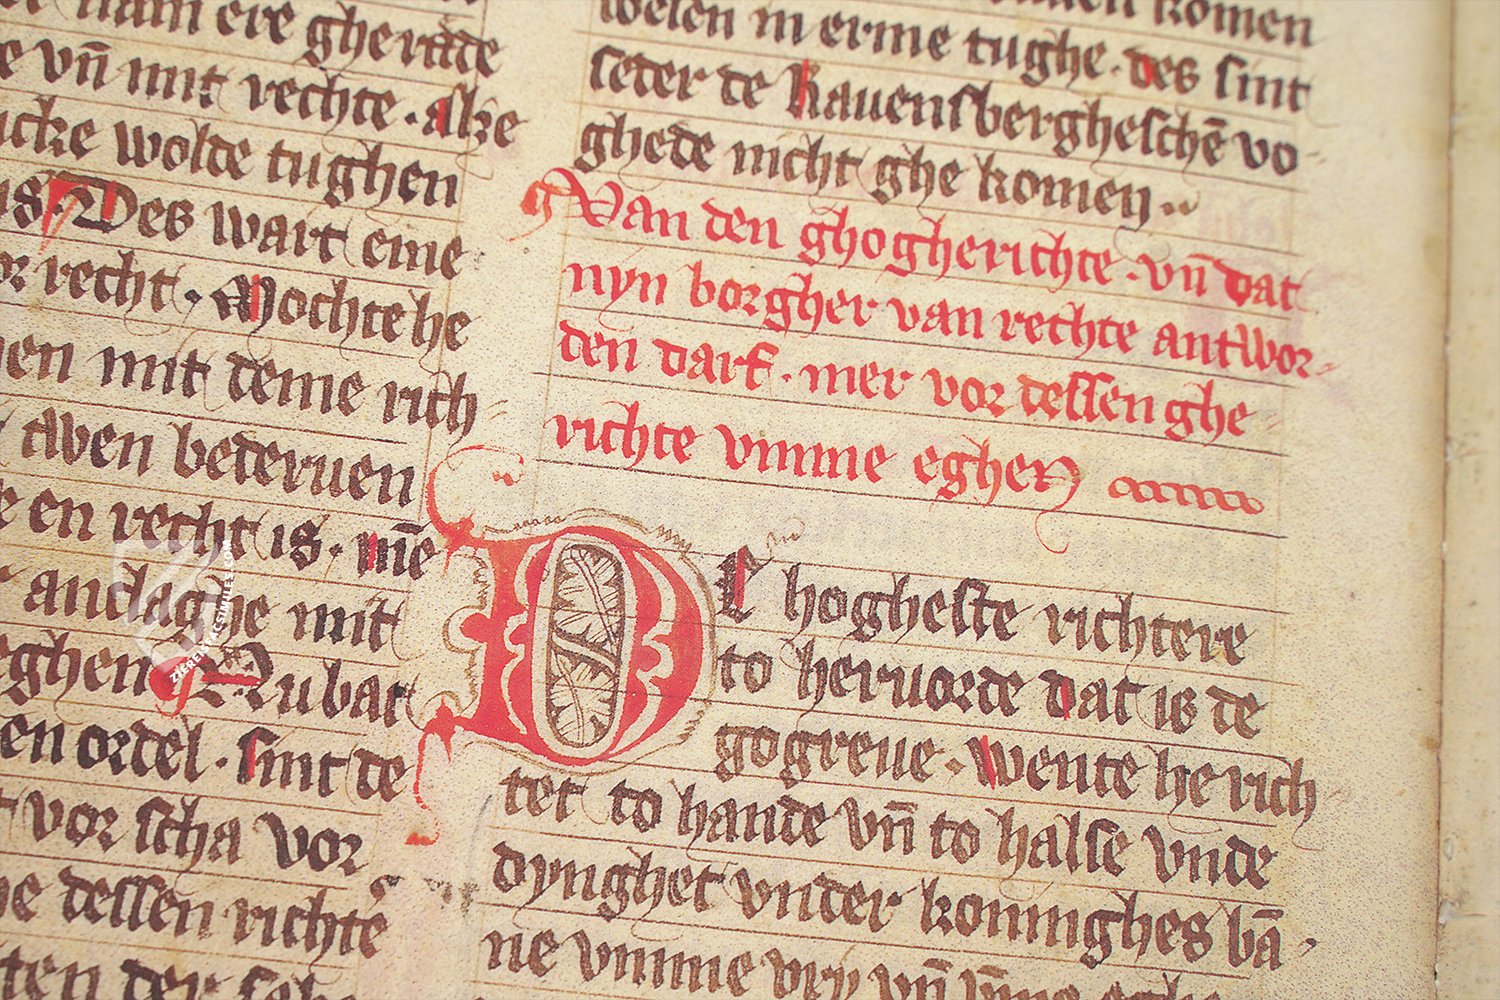 nam ere gherade
vn̄ mit rechte · alze
wolde tughen
Des wart eine
recht · Mochte he
mit deme rich
twen bederuen
en recht is · mē
andaghe mit
Nu bat
en ordel · sint de
vor scha vor
dessen richte
ten der
komen
in erme tughe · des sint
seder de Rauensbergheschē vo
ghede nicht ghe komen
Van den ghogherichte · vn̄ dat
nyn borgher van rechte antwor
den darf · mer vor dessen ghe
richte vmme eghen
DE hogheste richtere
to heruorde dat is de
gogreue · wente he rich
tet to hande vn̄ to halse vnde
dynghet vnder koninghes bā
ne vmme vry vn̄ vm̄e eghe
ZIEREIS FACSIMILES.COM